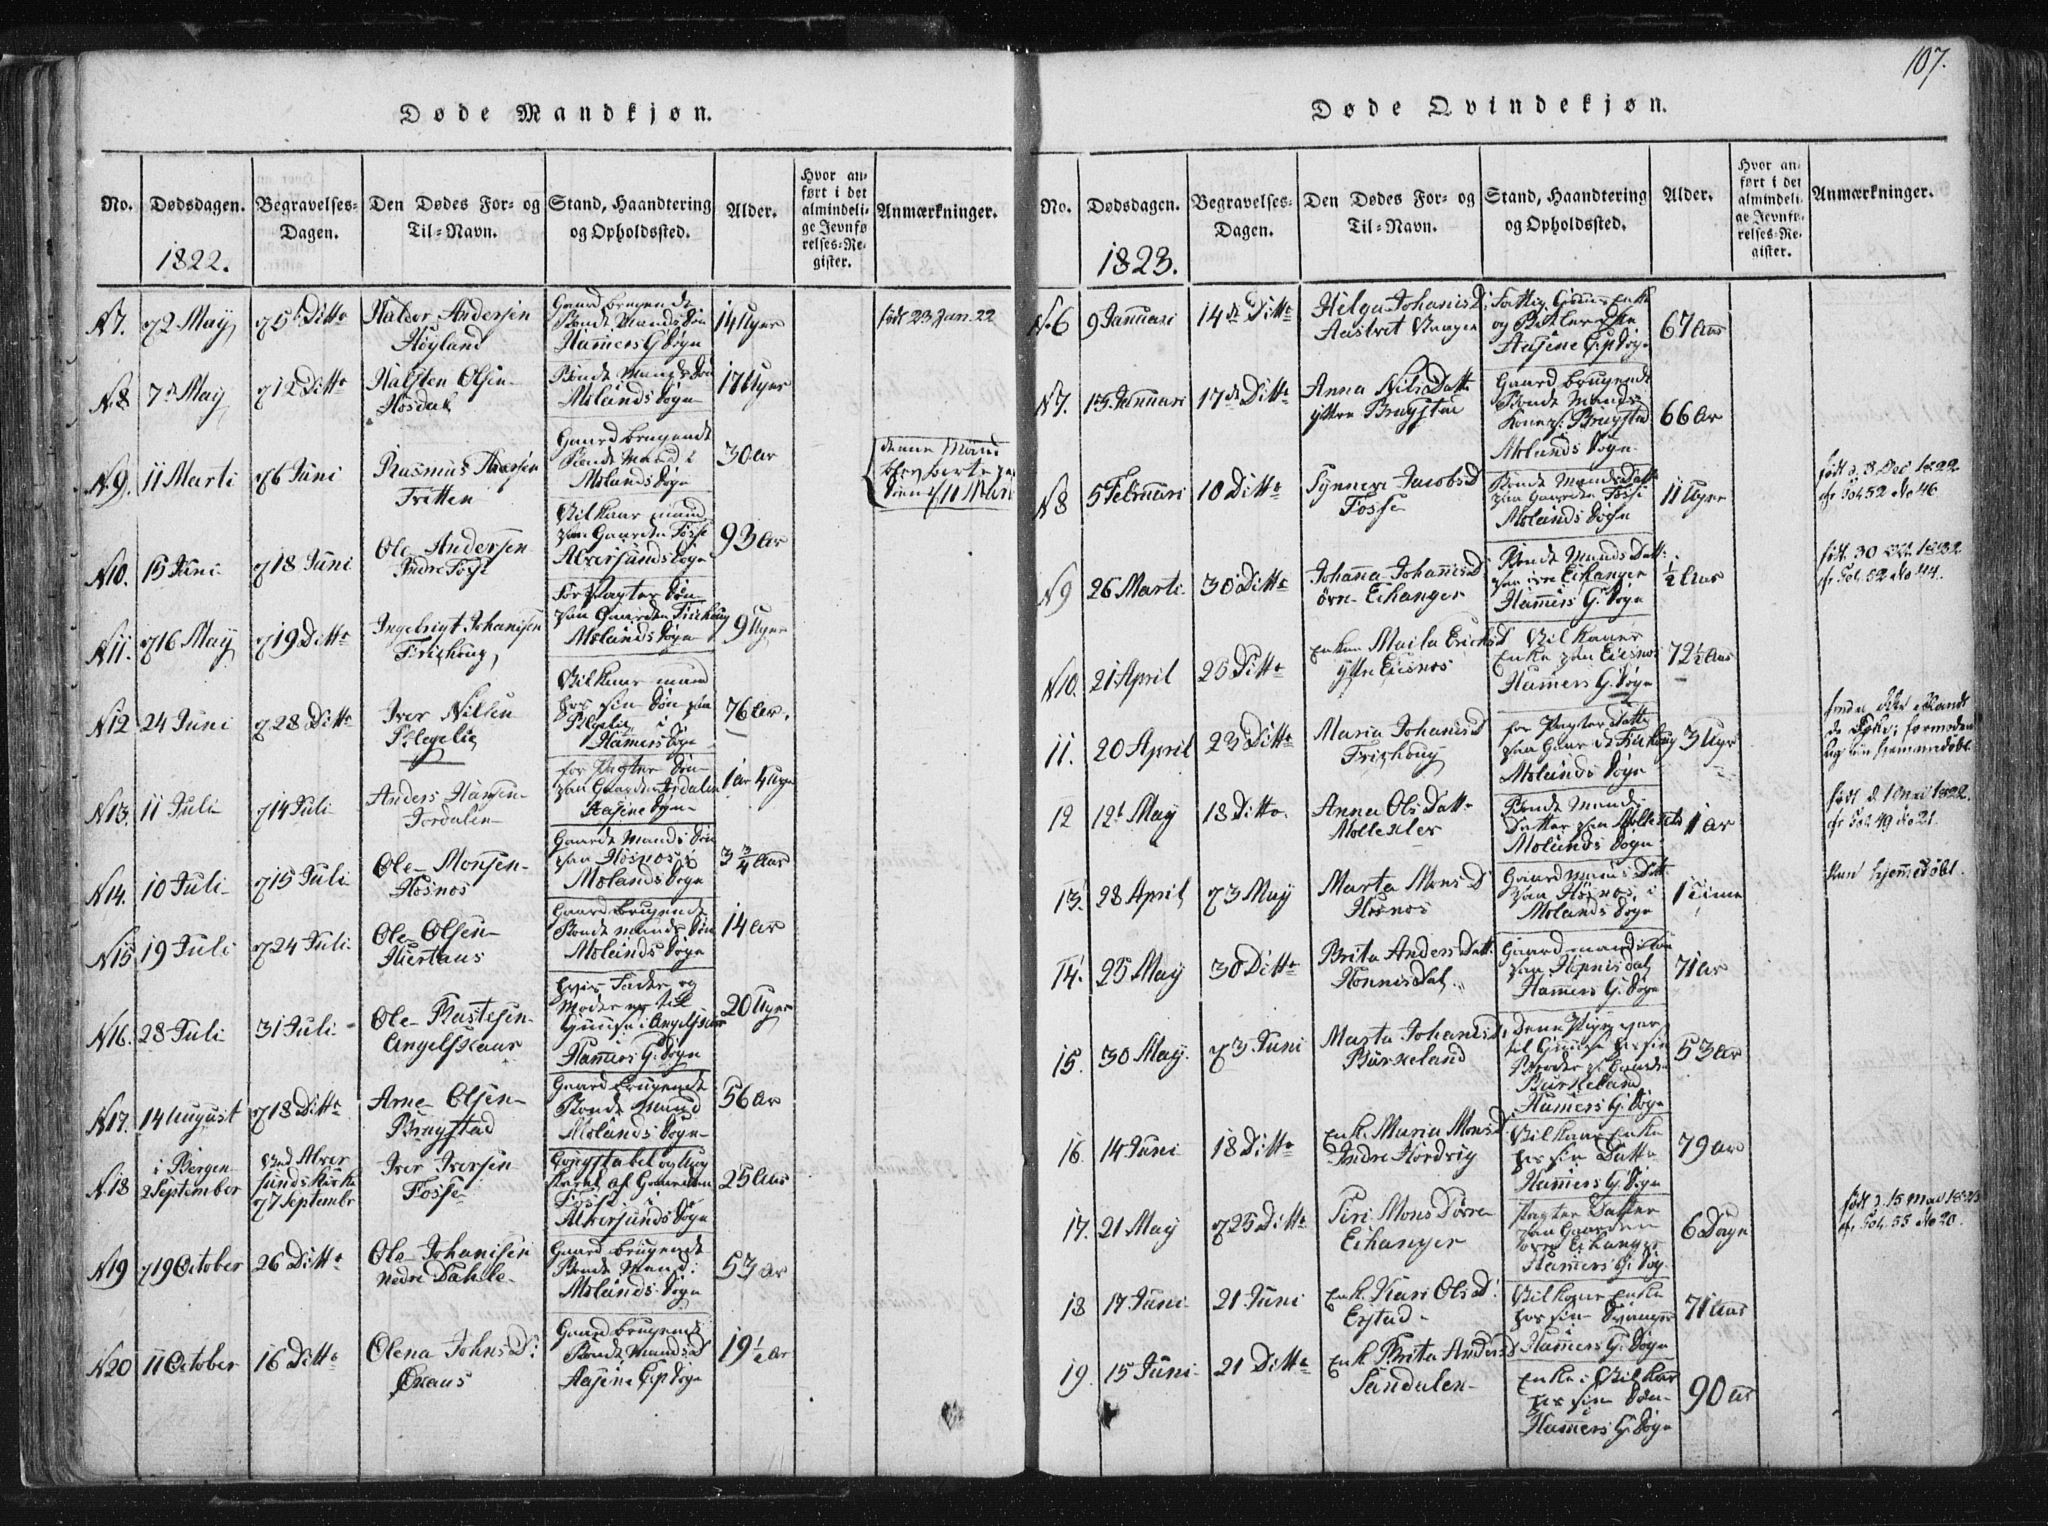 107.
Døde Mandkjøn.
No.
Dødsdagen.
1822.
Begravelses-
Dagen.
Den Dødes For- og
Til-Navn.
Stand, Haandtering
og Opholdssted.
Alder.
Hvor an-
ført i det
almindeli-
ge Jevnfø-
relses-Re-
gister.
Anmærkninger.
N 7.
22 May
25 Ditto
Haldor Andersen
Høyland
Gaard brugende
Bonde Mands Søn
Hamers G. Sogn
14 Uger
født 23 Jan. 22
N 8
7 May
12 Ditto
Halsten Olsen
Hosdal
Bonde Mands Søn
Molands Sogn
17 Uger
N 9.
11 Marti
6 Juni
Rasmus
Fritten
Gaard brugende
Bonde Mand i
Molands Sogn
30 Ar
denne Mand
blev borte paa
11 Marti
N 10.
15 Juni
18 Juni
Ole Andersen
Indre Fosse
Vilkaar mand
paa Gaarden Fosse
Alversunds Sogn
93 Ar
N 11.
16 May
19 Ditto
Ingebrigt Johanisen
Friehoug
For Pagter Søn
paa Gaarden Friehoug
Molands Sogn
9 Uger
N 12
24 Juni
28 Ditto
Iver Nilsen
Flegelie
Vilkaar mand
hos sin Søn paa
i
Hamers Sogn
76 Ar.
N 13.
11 Juli
14 Juli
Anders Hansen
Jordalen
for Pagter Søn
paa Gaarden Jordalen
Aasene Sogn
1 ar 4 uger
N 14.
10 Juli
15 Juli
Ole Monsen
Hosnos
Gaarde Mands Søn
paa Hosnos i
Molands Sogn
3 3/4 Aar
N 15
19 Juli
24 Juli
Ole Olsen
Hiertaus
Gaard brugende
Bonde mands Søn
Molands Sogn
14 ar
N 16.
28 Juli
31 Juli
Ole Rustesen
Angelskaar
hvis Fader og
Moder er til
Huuse i Angelskaar
Hamers G. Sogn
20 Uger
N 17.
14 August
18 Ditto
Arne Olsen
Brugstad
Gaard brugende
Bonde Mand
Molands Sogn
56 Ar
N 18
i Bergen
2 September
Ved Alver
sunds Kirke
7 Septembr
Iver Iversen
Fosse
af Gaarden
Fosse i
Alversunds Sogn
25 Aar
N 19
19 October
26 Ditto
Ole Johanisen
nedre Dahle
Gaard brugende
Bonde Mand i
Molands Sogn
53 Ar
N 20
11 October
16 Ditto
Olena Johns D:
Gaard brugende
Bonde Mands D
Aasene Sogn
19 1/2 Ar
Døde Qvindekjøn.
No.
Dødsdagen.
1823.
Begravelses-
Dagen.
Den Dødes For- og
Til-Navn.
Stand, Haandtering
og Opholdssted.
Alder.
Hvor an-
ført i det
almindeli-
ge Jevnfø-
relses-Re-
gister.
Anmærkninger.
N. 6
9 Januari
14de Ditto
Helga Johanis D:
Austret
Fattig Enke
og
Aasene Sogn
67 Aar
N 7.
13 Januari
17de Ditto
Anna Nils Datt
ytre Brugstad
Gaard brugende
Bonde Mands
Kone Brugstad
Molands Sogn
66 Ar
N 8
5 Februari
10 Ditto
Synneve Jacobs D
Fosse
Bonde Mands Datt
paa Gaarden Fosse
Molands Sogn
11 Uger
født d. 3 Dec 1822
cfr Fol. 52 No 46
N 9
26 Marti
30 Ditto
Johanna Johanis D
øvre Eihanger
Bonde Mands Datt:
paa øvre Eihanger
Hamers G. Sogn
1/2 Aar
født 30 Oct. 1822
cfr Fol. 52 No 44.
N 10.
21 April
25 Ditto
Enken Maila Erichs D
ytre Eiesnos
Vilkaars
Enke paa Eiesnos
Hamers G. Sogn
72 1/2 Aar
11.
20 April
23 Ditto
Maria Johanis D
Friehoug
for Pagter Datter
paa Gaarden Friehoug
Molands Sogn
3 Uger
findes ikke iblandt
de Døbte; formoden
lig kun hjemmedøbt
12
12t May
18 Ditto
Anna Ols Datt
Mollekler
Bonde Mands
Datter paa
Molands Sogn
1 Ar
født d. 1 Mai 1822.
cfr Fol. 49 No 21.
13.
28 April
3 May
Marta Mons D
Hosnos
Gaard mands Datt
paa Hosnos i
Molands Sogn
1 Time
kun hjemmedøbt.
14.
25 May
30 Ditto
Brita Anders Datt.
Honnisdal
Gaard mands
paa Honnisdal
Hamers G. Sogn
71 Ar
15.
30 May
3 Juni
Marta Johanis D:
Burkeland
Dene Pige var
til Huuse hos sin
Broder paa Gaarden
Burkeland
Hamers G. Sogn
53 Ar
16.
14 Juni
18 Ditto
Enk. Maria Mons D
Indre Hordvig
Vilkaars Enke
hos sin Datter
Hamers G. Sogn
79 Ar
17.
21 May
25 Ditto
Siri Mons D øvre
Eihanger
Pagter Datter
paa Gaarden
øvre Eihanger
Hamers G. Sogn
6 Dage
født d. 15 Mai 1823
cfr Fol. 55 No 20.
18
17 Juni
21 Juni
Enk. Kari Ols D:
Eystad
Vilkaars Enke
hos sin Svoger
i
Hamers G. Sogn
71 Aar
19.
15 Juni
21 Ditto
Enk. Brita Anders D
Sandalen
Enke i Vilkor
hos sin Søn
i
Hamers G. Sogn
90 ar